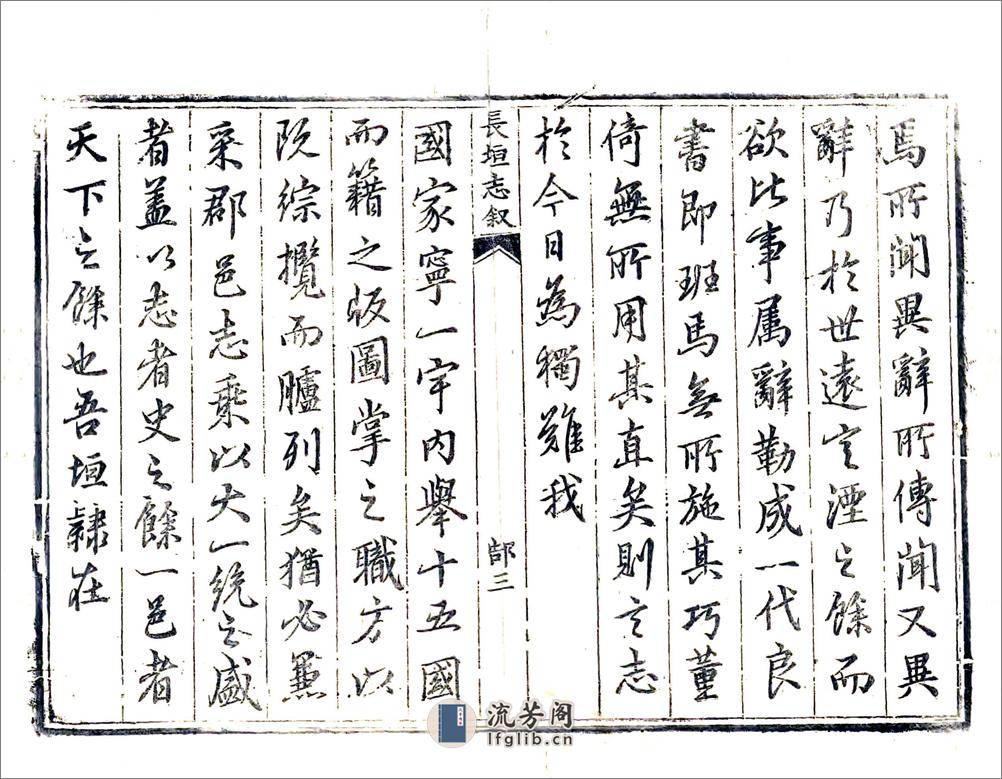 焉所聞異辭所傳聞又異
辭乃於世遠言湮之餘而
欲比事属辭勒成一代良
書即班馬無所施其巧董
倚無所用其直矣則言志
於今日為獨難我
長垣志叙
郜三
國家寧一宇內舉十五國
而籍之版圖掌之職方以
既綜攬而臚列矣猶必蒐
采郡邑志乗以大一统之盛
者盖以志者史之餘一邑者
天下之餘也吾垣隸在
流芳阁
lfglib.cn